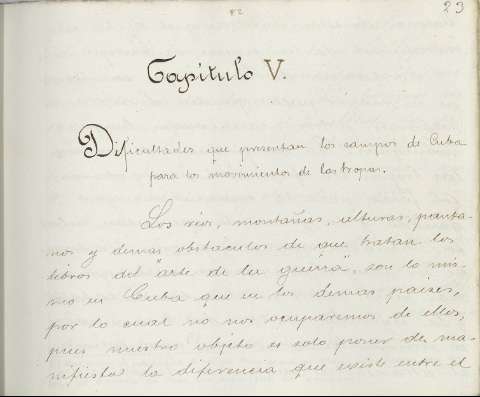 82
29
Capitulo V.
Dificultades que presentan los campos de Cuba
para los movimientos de las tropas.
Los rios, montañas, alturas, panta-
nos y demas obstaculos de que tratan los
libros del "arte de la guerra", son lo mis-
mo en Cuba que en los demas paises,
por lo cual no nos ocuparemos de ellos,
pues nuestro objeto es solo poner de ma-
nifiesto la diferencia que existe entre el